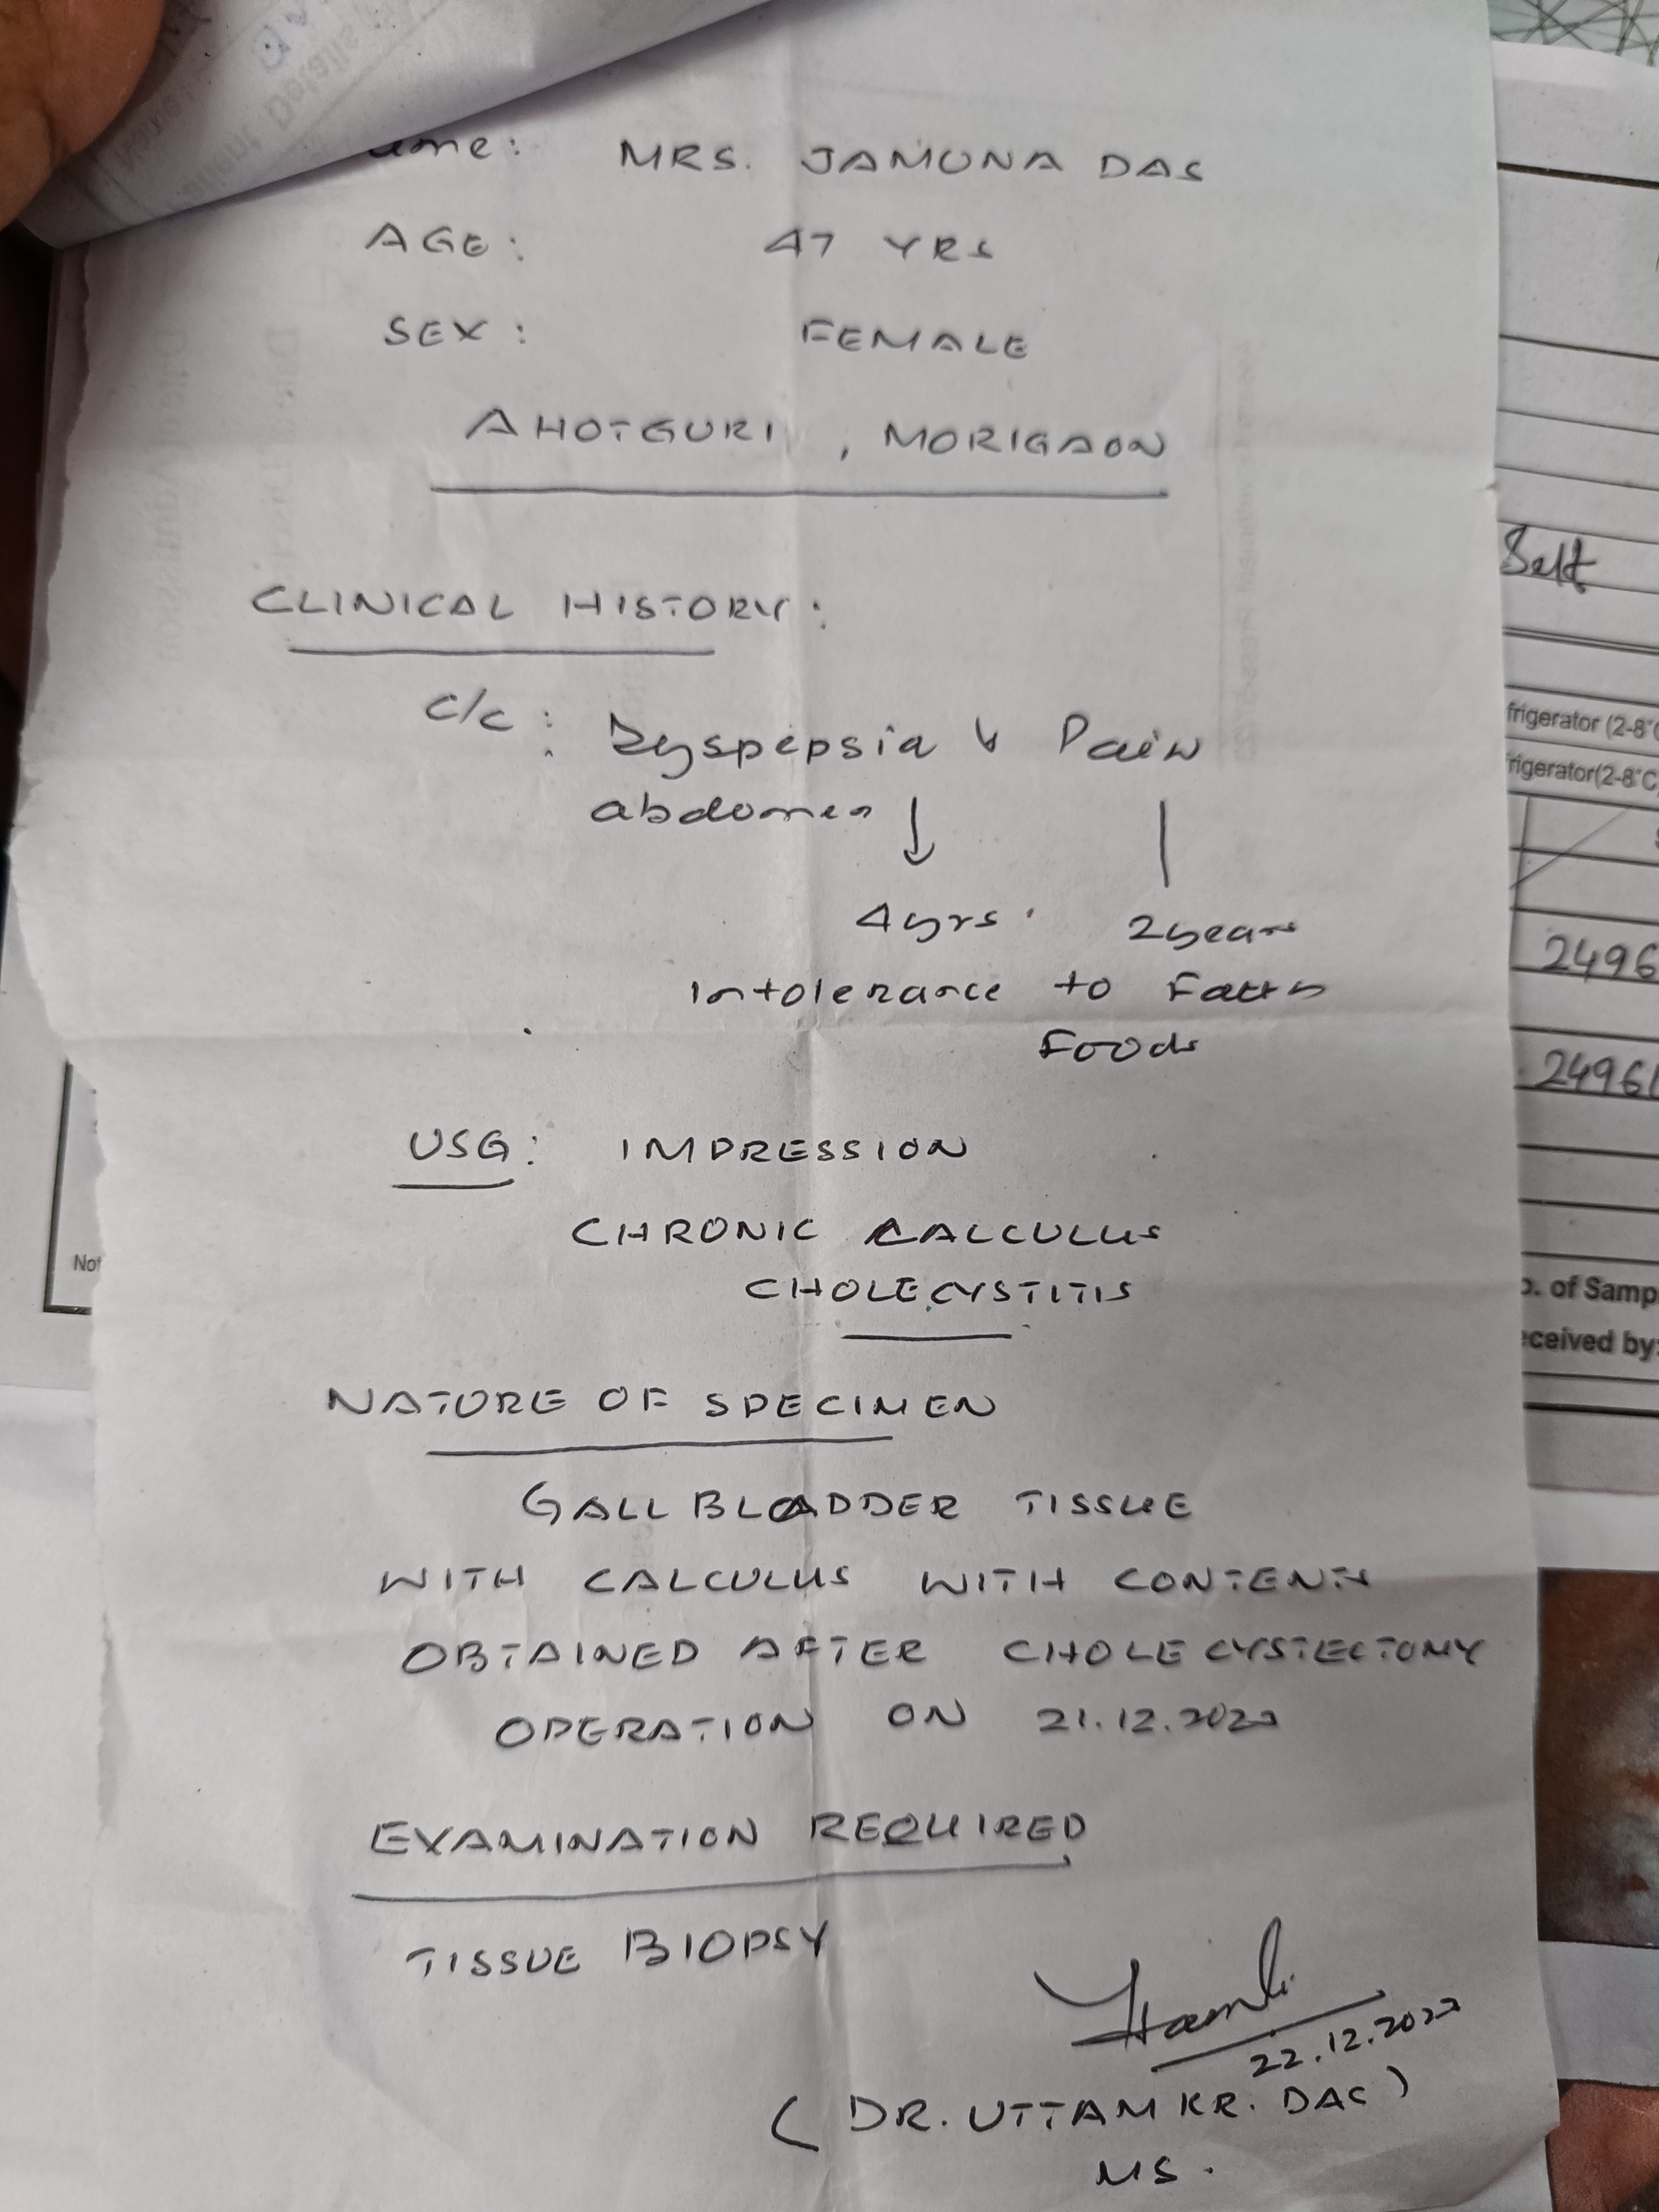 ame: MRS. JAMUNA DAS
AGE: 47 YRS
SEX: FEMALE
AHOTGURI, MORIGAON
CLINICAL HISTORY:
C/C: Dyspepsia & Pain
abdomen
4yrs 2years
Intolerance to Fatty
Foods
USG: IMPRESSION
CHRONIC CALCULUS
CHOLECYSTITIS
NATURE OF SPECIMEN
GALL BLADDER TISSUE
WITH CALCULUS WITH CONTENTS
OBTAINED AFTER CHOLECYSTECTOMY
OPERATION ON 21.12.2022
EXAMINATION REQUIRED
TISSUE BIOPSY
22.12.2022
(DR. UTTAM KR. DAS)
MS.
Self
frigerator (2-8°C
rigerator(2-8°C
2496
24961
Not
o. of Samp
eceived by: